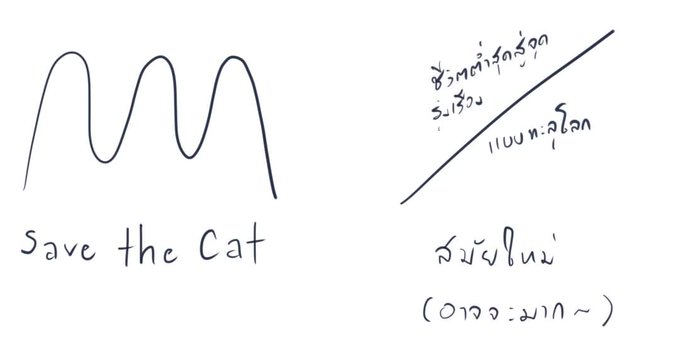 Save the Cat
ชีวิตต่ำสุดสู่จุด
รุ่งเรือง
แบบทะลุโลก
สมัยใหม่
(อาจจะมาก~)